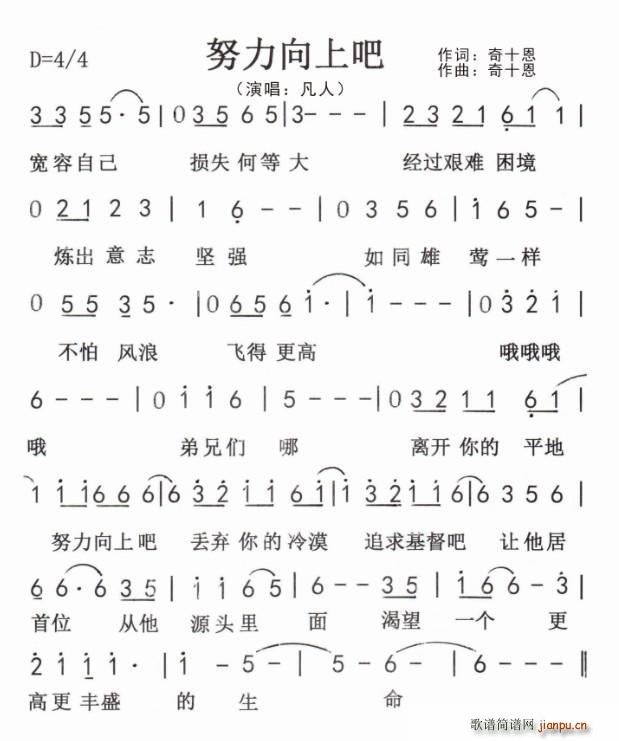 努力向上吧
D=4/4
作词：奇十恩
作曲：奇十恩
（演唱：凡人）
3 3 5 5 5· 5 | 0 3 5 6 5 | 3 - - - | 2 3 2 1 6 1 1 |
宽容自己 损失何等大 经过艰难 困境
0 2 1 2 3 | 1 6 - - | 0 3 5 6 | 1 6 5 - |
炼出意志 坚强 如同雄 莺一样
0 5 5 3 5 · | 0 6 5 6 1 · | 1 - - - | 0 3 2 1 |
不怕 风浪 飞得更高 哦哦哦
6 - - - | 0 1 1 6 | 5 - - - | 0 3 2 1 1 1 6 1 |
哦 弟兄们 哪 离开你的 平地
1 1 1 6 6 6 6 | 6 3 2 1 1 6 1 | 1 3 2 1 6 6 | 6 3 5 6 |
努力向上吧 丢弃你的冷漠 追求基督吧 让他居
6 6 · 6 3 5 | 1 1 6 5 | 6 - - 3 5 | 1 6 6 - 3 |
首位 从他 源头里 面 渴望一个 更
2 1 1 1 · | 1 - 5 - | 5 - 6 - | 6 - - - ‖
高更丰盛 的生 命
歌谱简谱网
jianpu.cn